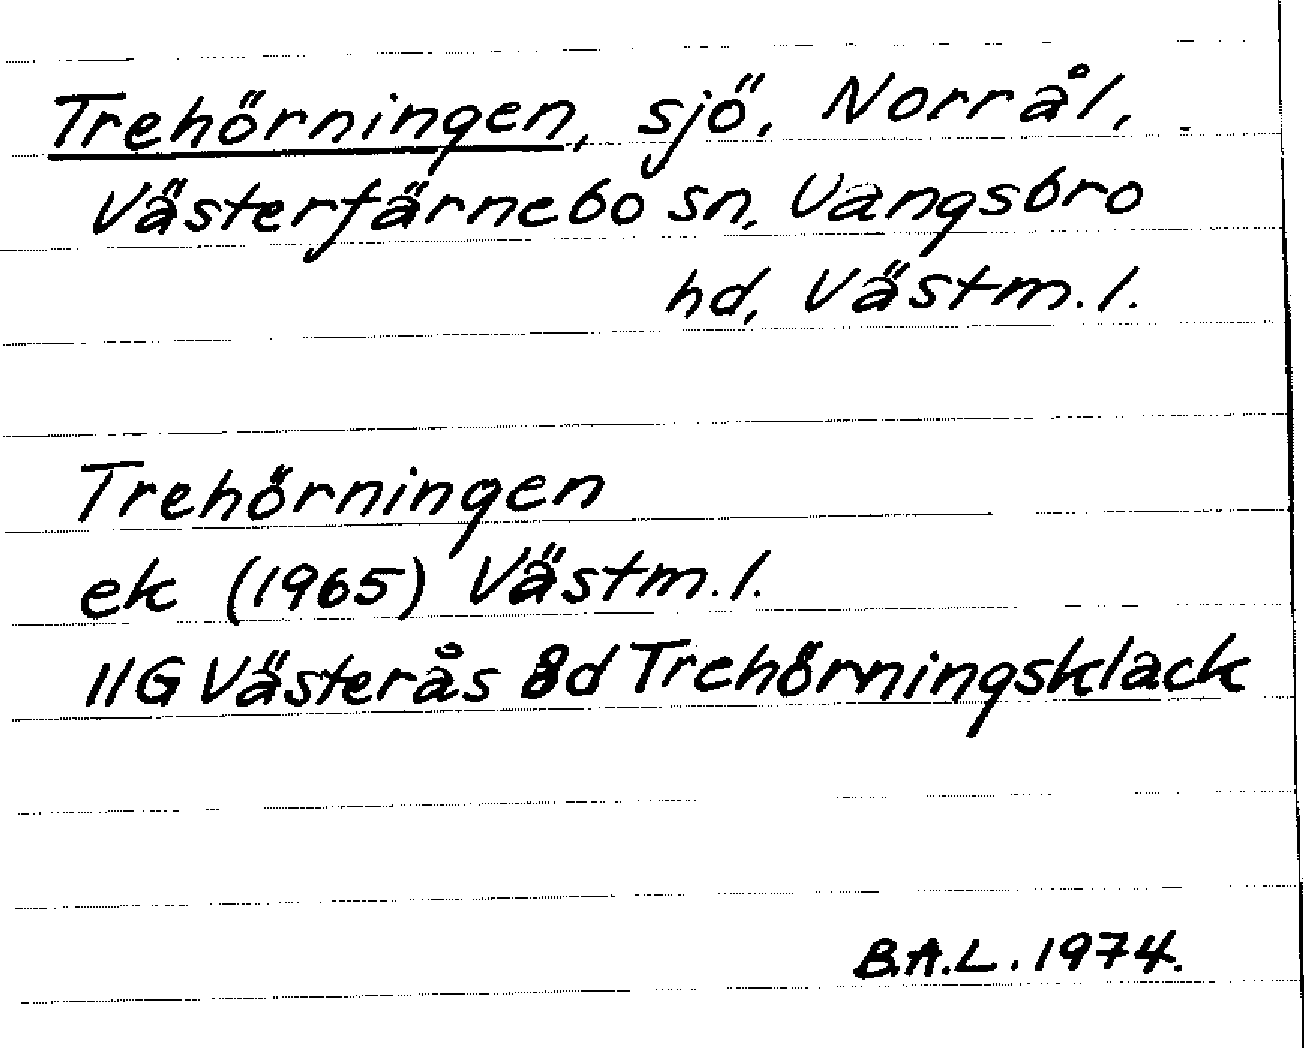 Trehörningen, sjö, Norrål,
Västerfärnebo sn, Vangsbro
hd, Västm.l.
Trehörningen
ek (1965) Västm.l.
11G Västerås 8d Trehörningsklack
B.A.L. 1974.